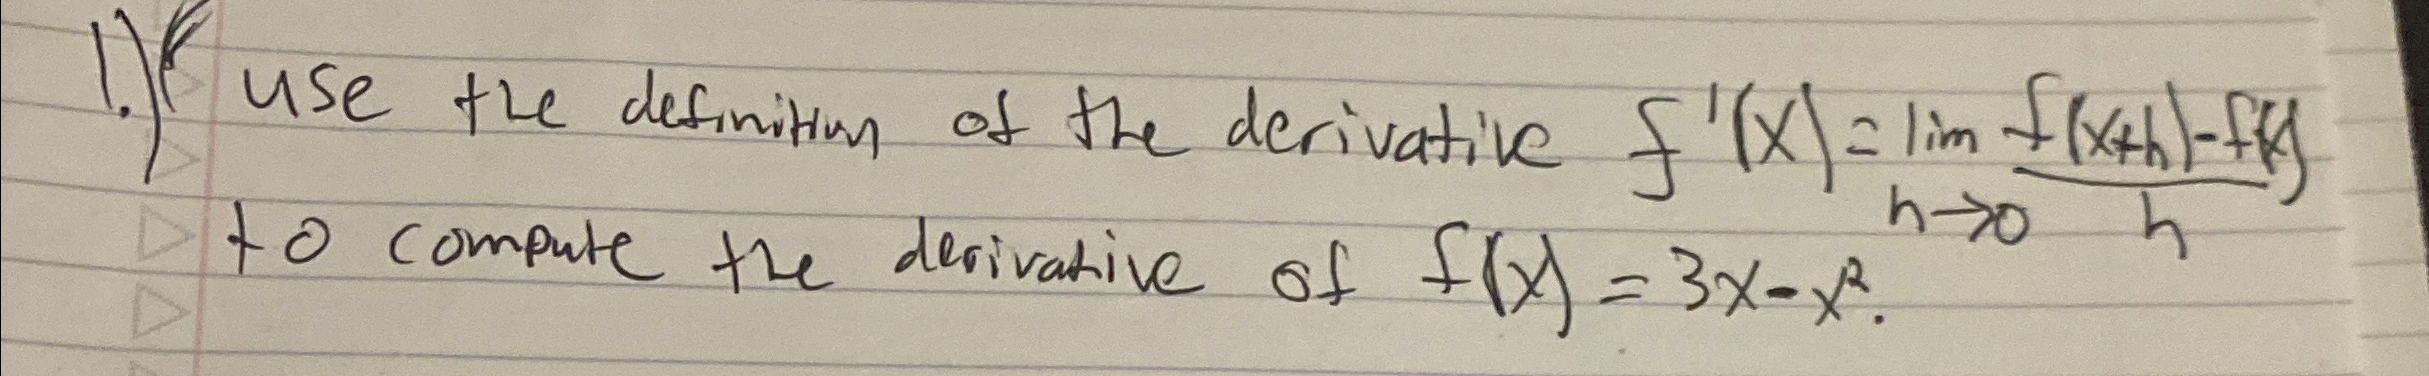 1.) use the definition of the derivative f'(x) = lim f(x+h)-f(x)
h→0 h
to compute the derivative of f(x) = 3x-x².